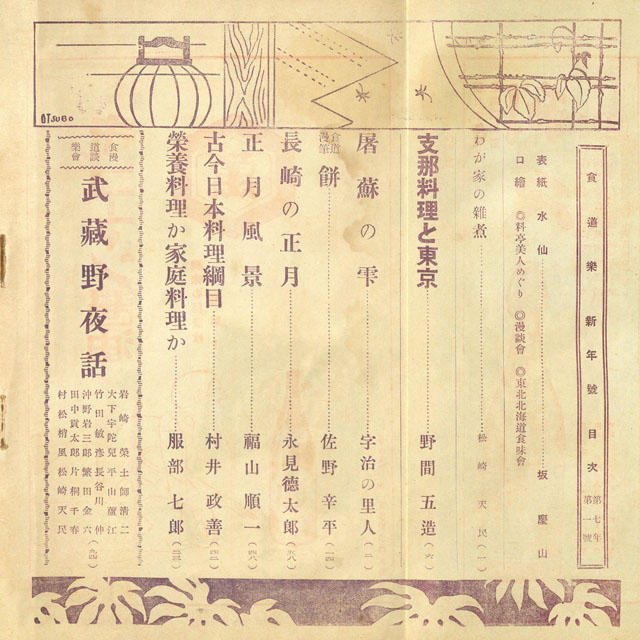 食道樂 新年號 目次 第七年 第一號
表紙 水仙 坂慶山
口繪 ◎料亭美人めぐり ◎漫談會 ◎東北北海道食味會
わが家の雜煮 松崎天民(一)
支那料理と東京 野間五造(六)
屠蘇の雫 宇治の里人(一二)
食道漫筆 餅 佐野辛平(一四)
長崎の正月 永見德太郎(三八)
正月風景 福山順一(四八)
古今日本料理綱目 村井政善(四二)
榮養料理か家庭料理か 服部七郎(二三)
食道樂漫談會
武藏野夜話
岩崎榮 土師清二
大下宇陀兒 平山蘆江
竹田敏彥 長谷川伸
沖野岩三郎 繁田金六
田中貢太郎 片桐千春
村松梢風 松崎天民
(九四)
OTSUBO